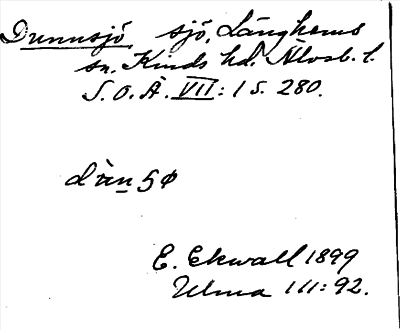 Dunnsjö sjö, Länghems
sn. Kinds hd. Älvsb. l.
S.O.Ä. VII: 1 s. 280.
E. Ekwall 1899
Ulma 111: 92.